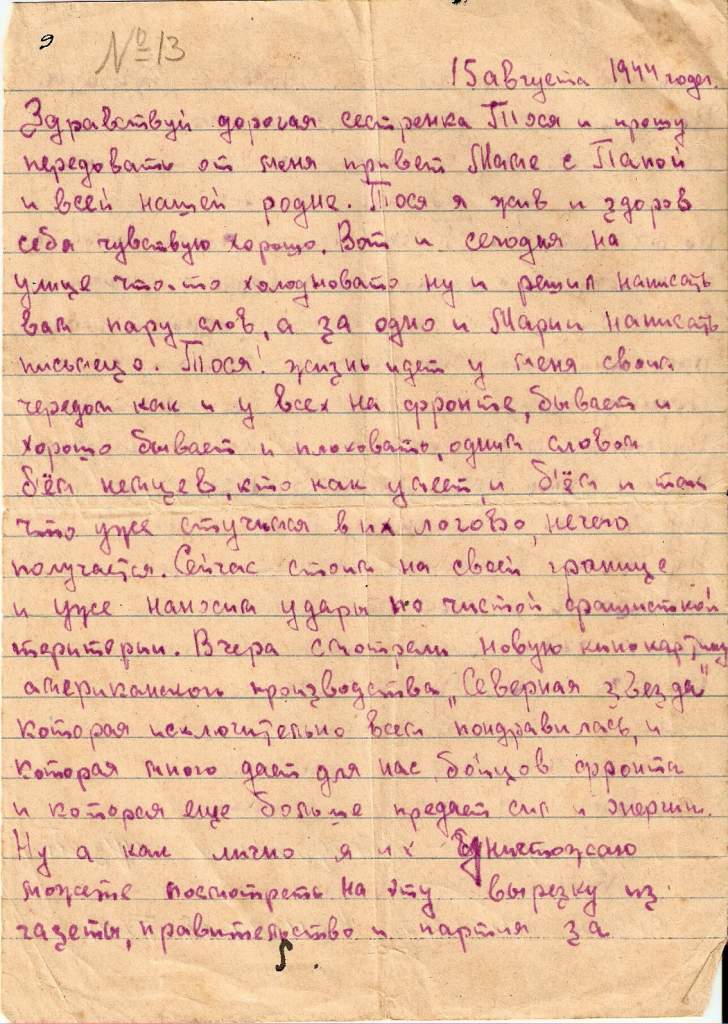 9
№ 13
15 августа 1944 года.
Здравствуй дорогая сестренка Тося и прошу
передовать от меня привет Маме с Папой
и всей нашей родне. Тося я жив и здоров
себя чувствую хорошо. Вот и сегодня на
улице что-то холодновато ну и решил написать
вам пару слов, а за одно и Марии написать
письмецо. Тося! жизнь идет у меня своим
чередом как и у всех на фронте, бывает и
хорошо бывает и плоховато, одним словом
бъём немцев, кто как умеет, и бъём и так
что уже стучимся в их логово, нечего
получается. Сейчас стоим на своей границе
и уже наносим удары по чистой фашисткой
територии. Вчера смотрели новую кинокартину
американского производства „Северная звезда"
которая исключительно всем пондравилась, и
которая много дает для нас бойцов фронта
и которая еще больше предает сил и энергии.
Ну а как лично я их уничтожаю
можете посмотреть на эту вырезку из
газеты, правительство и партия за
5.